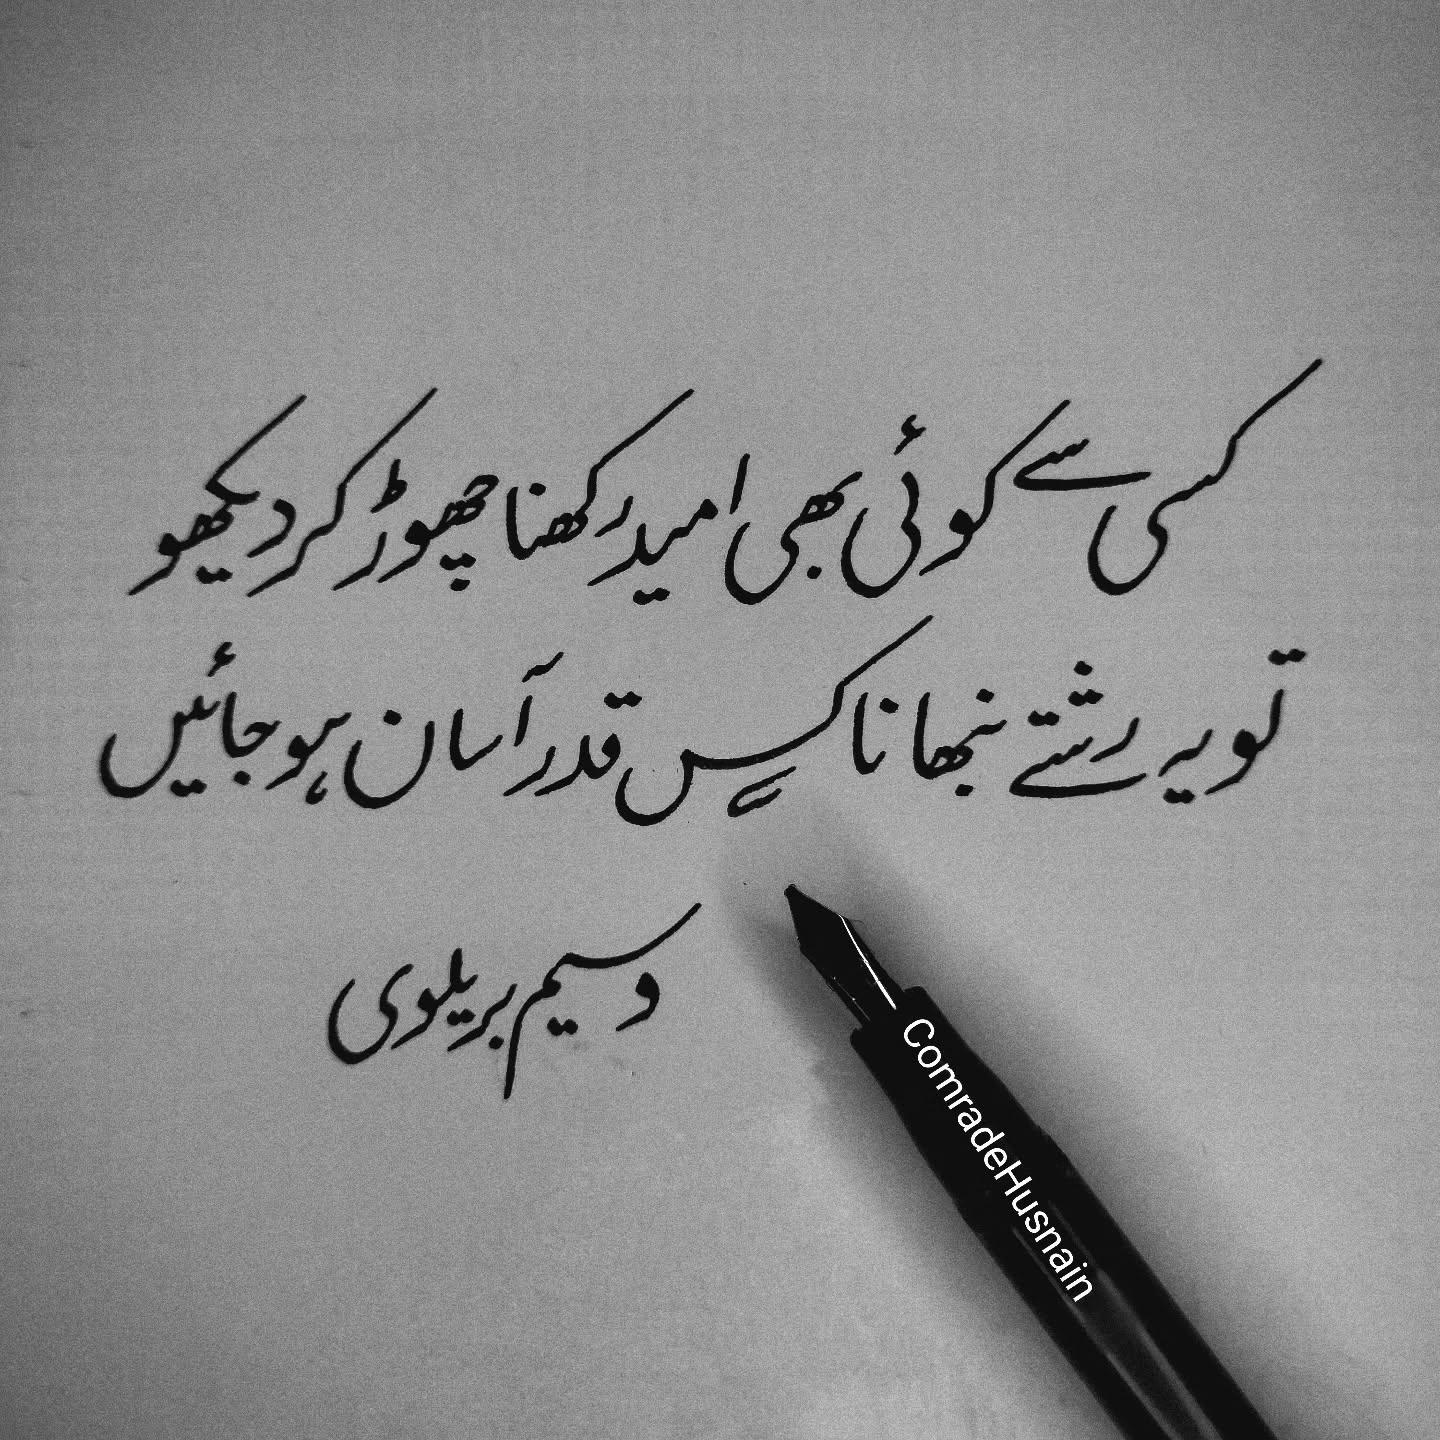 کسی سے کوئی بھی امید رکھنا چھوڑ کر دیکھو
تو یہ رشتے نبھانا کس قدر آسان ہو جائیں
وسیم بریلوی
ComradeHusnain